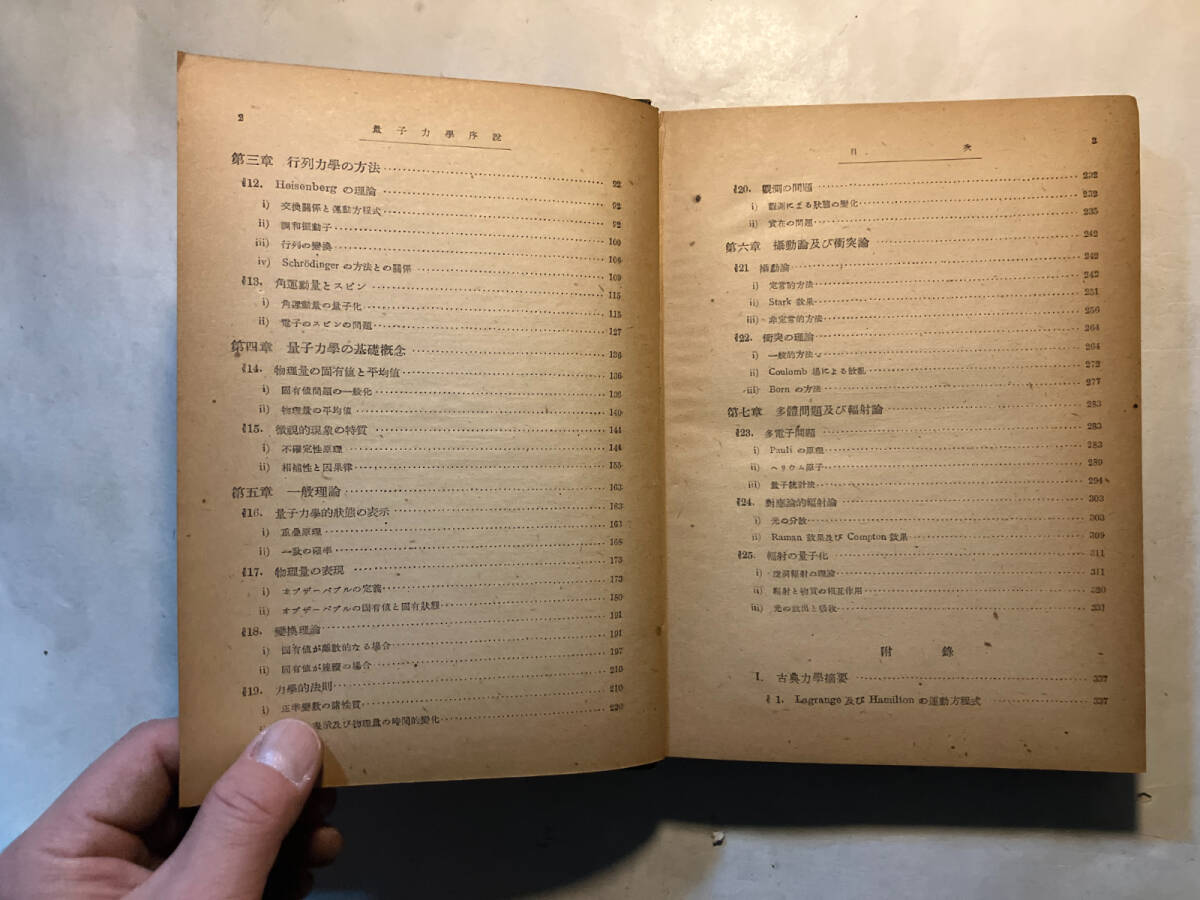 2
量子力學序說
第三章 行列力學の方法 92
§12. Heisenberg の理論 92
i) 交換關係と運動方程式 92
ii) 調和振動子 100
iii) 行列の變換 106
iv) Schrödinger の方法との關係 109
§13. 角運動量とスピン 115
i) 角運動量の量子化 115
ii) 電子のスピンの問題 127
第四章 量子力學の基礎概念 136
§14. 物理量の固有値と平均値 136
i) 固有値問題の一般化 136
ii) 物理量の平均値 140
§15. 微視的現象の特質 144
i) 不確定性原理 144
ii) 相補性と因果律 155
第五章 一般理論 163
§16. 量子力學的狀態の表示 163
i) 重疊原理 163
ii) 一致の確率 168
§17. 物理量の表現 173
i) オブザーバブルの定義 173
ii) オブザーバブルの固有値と固有狀態 180
§18. 變換理論 191
i) 固有値が離散的なる場合 191
ii) 固有値が連續の場合 197
§19. 力學的法則 210
i) 正準變數の諸性質 210
表示及び物理量の時間的變化 220
目次
3
§20. 觀測の問題 232
i) 觀測による狀態の變化 232
ii) 實在の問題 235
第六章 攝動論及び衝突論 242
§21 攝動論 242
i) 定常的方法 242
ii) Stark 效果 251
iii) 非定常的方法 256
§22. 衝突の理論 264
i) 一般的方法 264
ii) Coulomb 場による散亂 272
iii) Born の方法 277
第七章 多體問題及び輻射論 283
§23. 多電子問題 283
i) Pauli の原理 283
ii) ヘリウム原子 289
iii) 量子統計法 294
§24. 對應論的輻射論 303
i) 光の分散 303
ii) Raman 效果及び Compton 效果 309
§25. 輻射の量子化 311
i) 空洞輻射の理論 311
ii) 輻射と物質の相互作用 320
iii) 光の放出と吸收 331
附錄
I. 古典力學摘要 337
§ 1. Lagrange 及び Hamilton の運動方程式 337